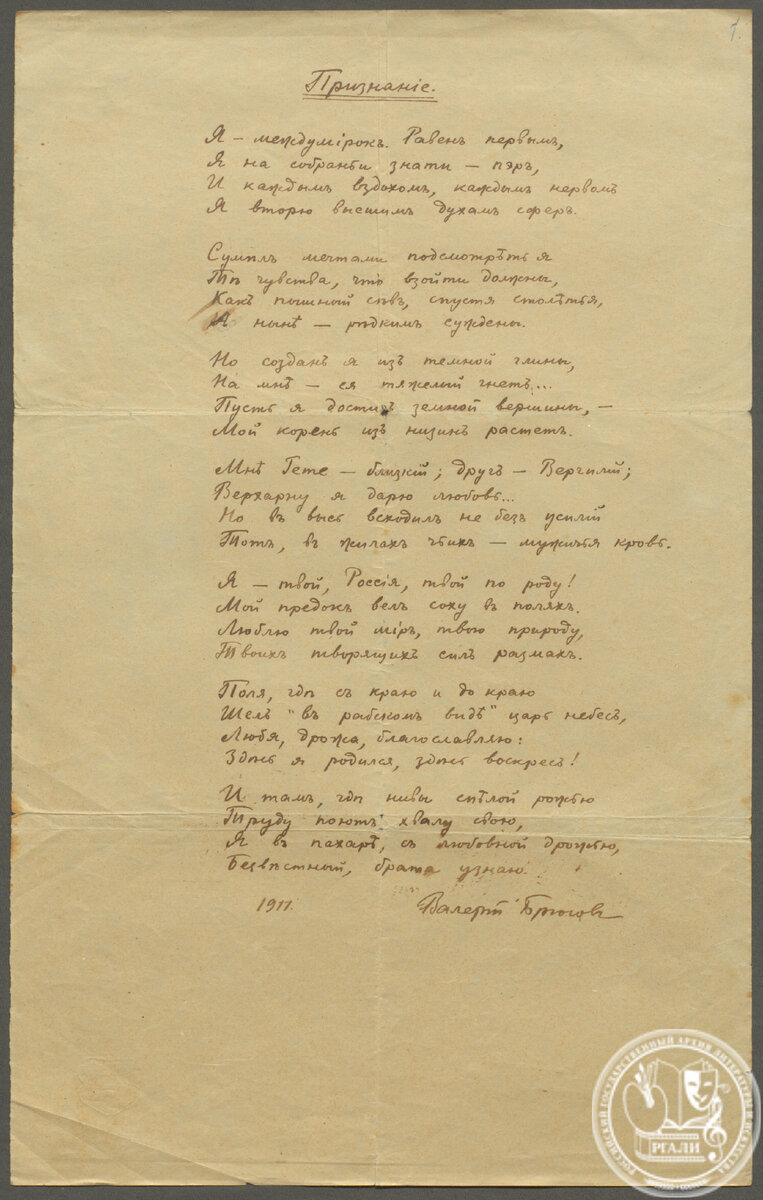 1.
Признанiе.
Я – междумiрокъ. Равенъ первымъ,
Я на собраньи знати – пэръ,
И каждымъ вздохомъ, каждымъ нервомъ
Я вторю высшимъ духамъ сферъ.
Сумѣлъ мечтами подсмотрѣть я
Тѣ чувства, что взойти должны,
Какъ пышный сѣвъ, спустя столѣтья,
А нынѣ – рѣдкимъ суждены.
Но созданъ я изъ темной глины,
На мнѣ – ея тяжелый гнетъ...
Пусть я достигъ земной вершины, –
Мой корень изъ низинъ растетъ.
Мнѣ Гете – близкiй; другъ – Вергилiй;
Верхарну я дарю любовь...
Но въ высь всходилъ не безъ усилiй
Тотъ, въ жилахъ чьихъ – мужичья кровь.
Я – твой, Россiя, твой по роду!
Мой предокъ велъ соху въ поляхъ.
Люблю твой мiръ, твою природу,
Твоихъ творящихъ силъ размахъ.
Поля, гдѣ съ краю и до краю
Шелъ "въ рабскомъ видѣ" царь небесъ,
Любя, дрожа, благославляю:
Здѣсь я родился, здѣсь воскресъ!
И тамъ, гдѣ нивы спѣлой рожью
Труду поютъ хвалу свою,
Я въ пахарѣ, съ любовной дрожью,
Безвѣстный, брата узнаю.
1911. Валерiй Брюсовъ
РОССИЙСКИЙ ГОСУДАРСТВЕННЫЙ АРХИВ ЛИТЕРАТУРЫ И ИСКУССТВА
РГАЛИ